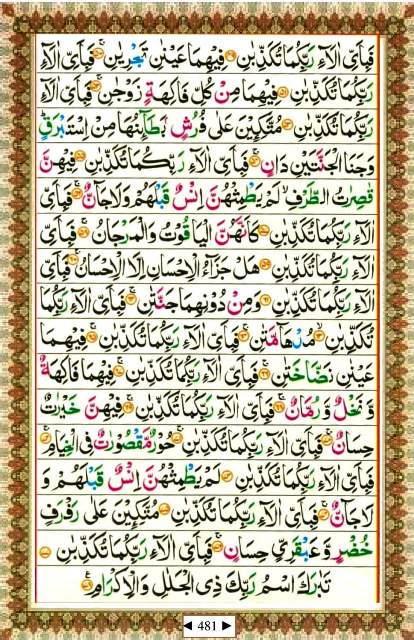 فَبِاَىِّ اٰلَآءِ رَبِّكُمَا تُكَذِّبٰنِ فِيْهِمَا عَيْنٰنِ تَجْرِيٰنِ فَبِاَىِّ اٰلَآءِ
رَبِّكُمَا تُكَذِّبٰنِ فِيْهِمَا مِنْ كُلِّ فَاكِهَةٍ زَوْجٰنِ فَبِاَىِّ اٰلَآءِ
رَبِّكُمَا تُكَذِّبٰنِ مُتَّكِـِٕيْنَ عَلٰى فُرُشٍ بَطَآئِنُهَا مِنْ اِسْتَبْرَقٍ
وَجَنَا الْجَنَّتَيْنِ دَانٍ فَبِاَىِّ اٰلَآءِ رَبِّكُمَا تُكَذِّبٰنِ فِيْهِنَّ
قٰصِرٰتُ الطَّرْفِ لَمْ يَطْمِثْهُنَّ اِنْسٌ قَبْلَهُمْ وَلَا جَآنٌّ فَبِاَىِّ
اٰلَآءِ رَبِّكُمَا تُكَذِّبٰنِ كَاَنَّهُنَّ الْيَاقُوْتُ وَالْمَرْجَانُ فَبِاَىِّ
اٰلَآءِ رَبِّكُمَا تُكَذِّبٰنِ هَلْ جَزَآءُ الْاِحْسَانِ اِلَّا الْاِحْسَانُ فَبِاَىِّ
اٰلَآءِ رَبِّكُمَا تُكَذِّبٰنِ وَمِنْ دُوْنِهِمَا جَنَّتٰنِ فَبِاَىِّ اٰلَآءِ رَبِّكُمَا
تُكَذِّبٰنِ مُدْهَآمَّتٰنِ فَبِاَىِّ اٰلَآءِ رَبِّكُمَا تُكَذِّبٰنِ فِيْهِمَا
عَيْنٰنِ نَضَّاخَتٰنِ فَبِاَىِّ اٰلَآءِ رَبِّكُمَا تُكَذِّبٰنِ فِيْهِمَا فَاكِهَةٌ
وَّنَخْلٌ وَّرُمَّانٌ فَبِاَىِّ اٰلَآءِ رَبِّكُمَا تُكَذِّبٰنِ فِيْهِنَّ خَيْرٰتٌ
حِسَانٌ فَبِاَىِّ اٰلَآءِ رَبِّكُمَا تُكَذِّبٰنِ حُوْرٌ مَّقْصُوْرٰتٌ فِى الْخِيَامِ
فَبِاَىِّ اٰلَآءِ رَبِّكُمَا تُكَذِّبٰنِ لَمْ يَطْمِثْهُنَّ اِنْسٌ قَبْلَهُمْ وَ
لَا جَآنٌّ فَبِاَىِّ اٰلَآءِ رَبِّكُمَا تُكَذِّبٰنِ مُتَّكِـِٕيْنَ عَلٰى رَفْرَفٍ
خُضْرٍ وَّعَبْقَرِىٍّ حِسَانٍ فَبِاَىِّ اٰلَآءِ رَبِّكُمَا تُكَذِّبٰنِ
تَبٰرَكَ اسْمُ رَبِّكَ ذِى الْجَلٰلِ وَالْاِكْرَامِ
◄ 481 ►